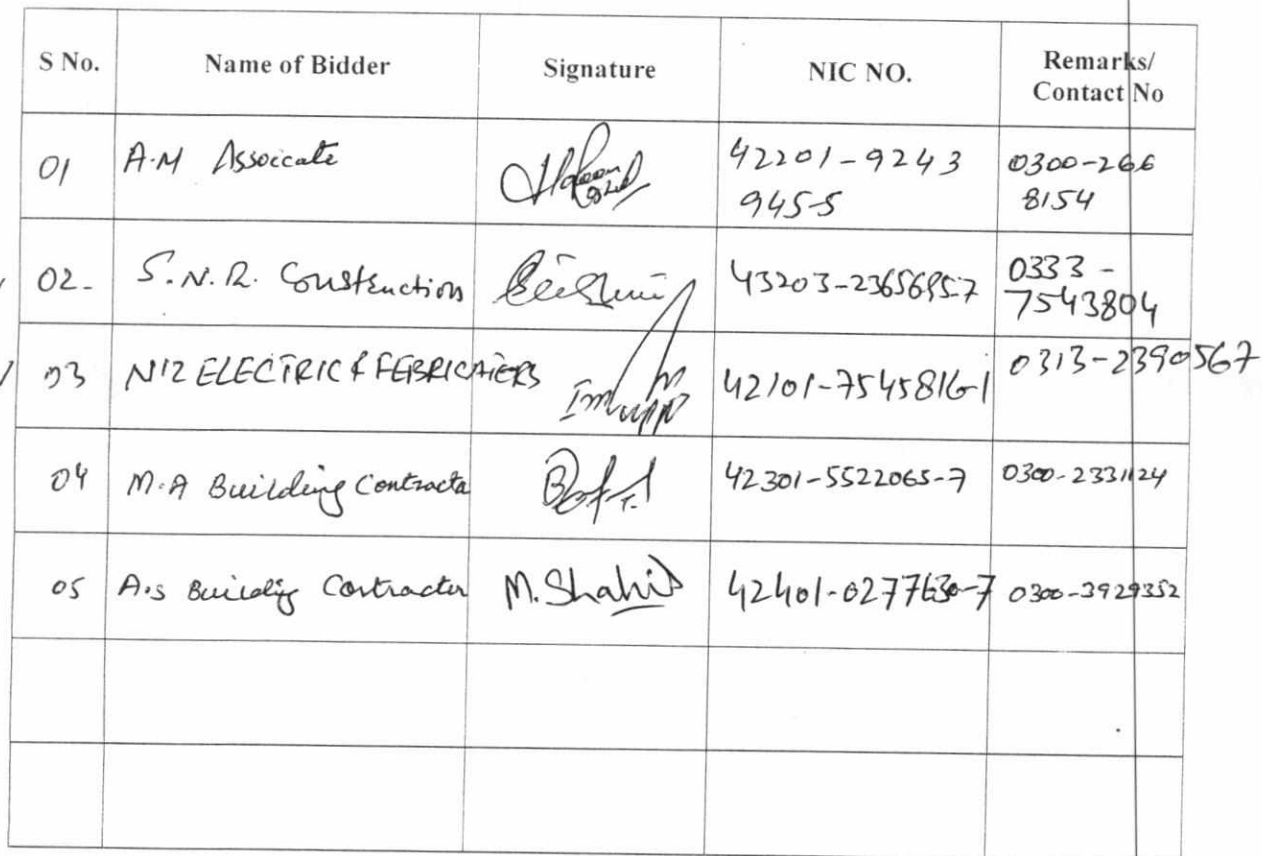 S No. Name of Bidder Signature NIC NO. Remarks/
Contact No
01 A.M Assoicate 42201-9243 0300-266
9455 8154
02- S.N.R. Construction 43203-2365695-7 0333-
7543804
03 N12 ELECTRIC & FEBRICATERS 42101-7545816-1 0313-2390567
04 M.A Building Contracta 42301-5522065-7 0300-2331124
05 A.s Building Contracter M.Shahid 42401-0277630-7 0300-3929352